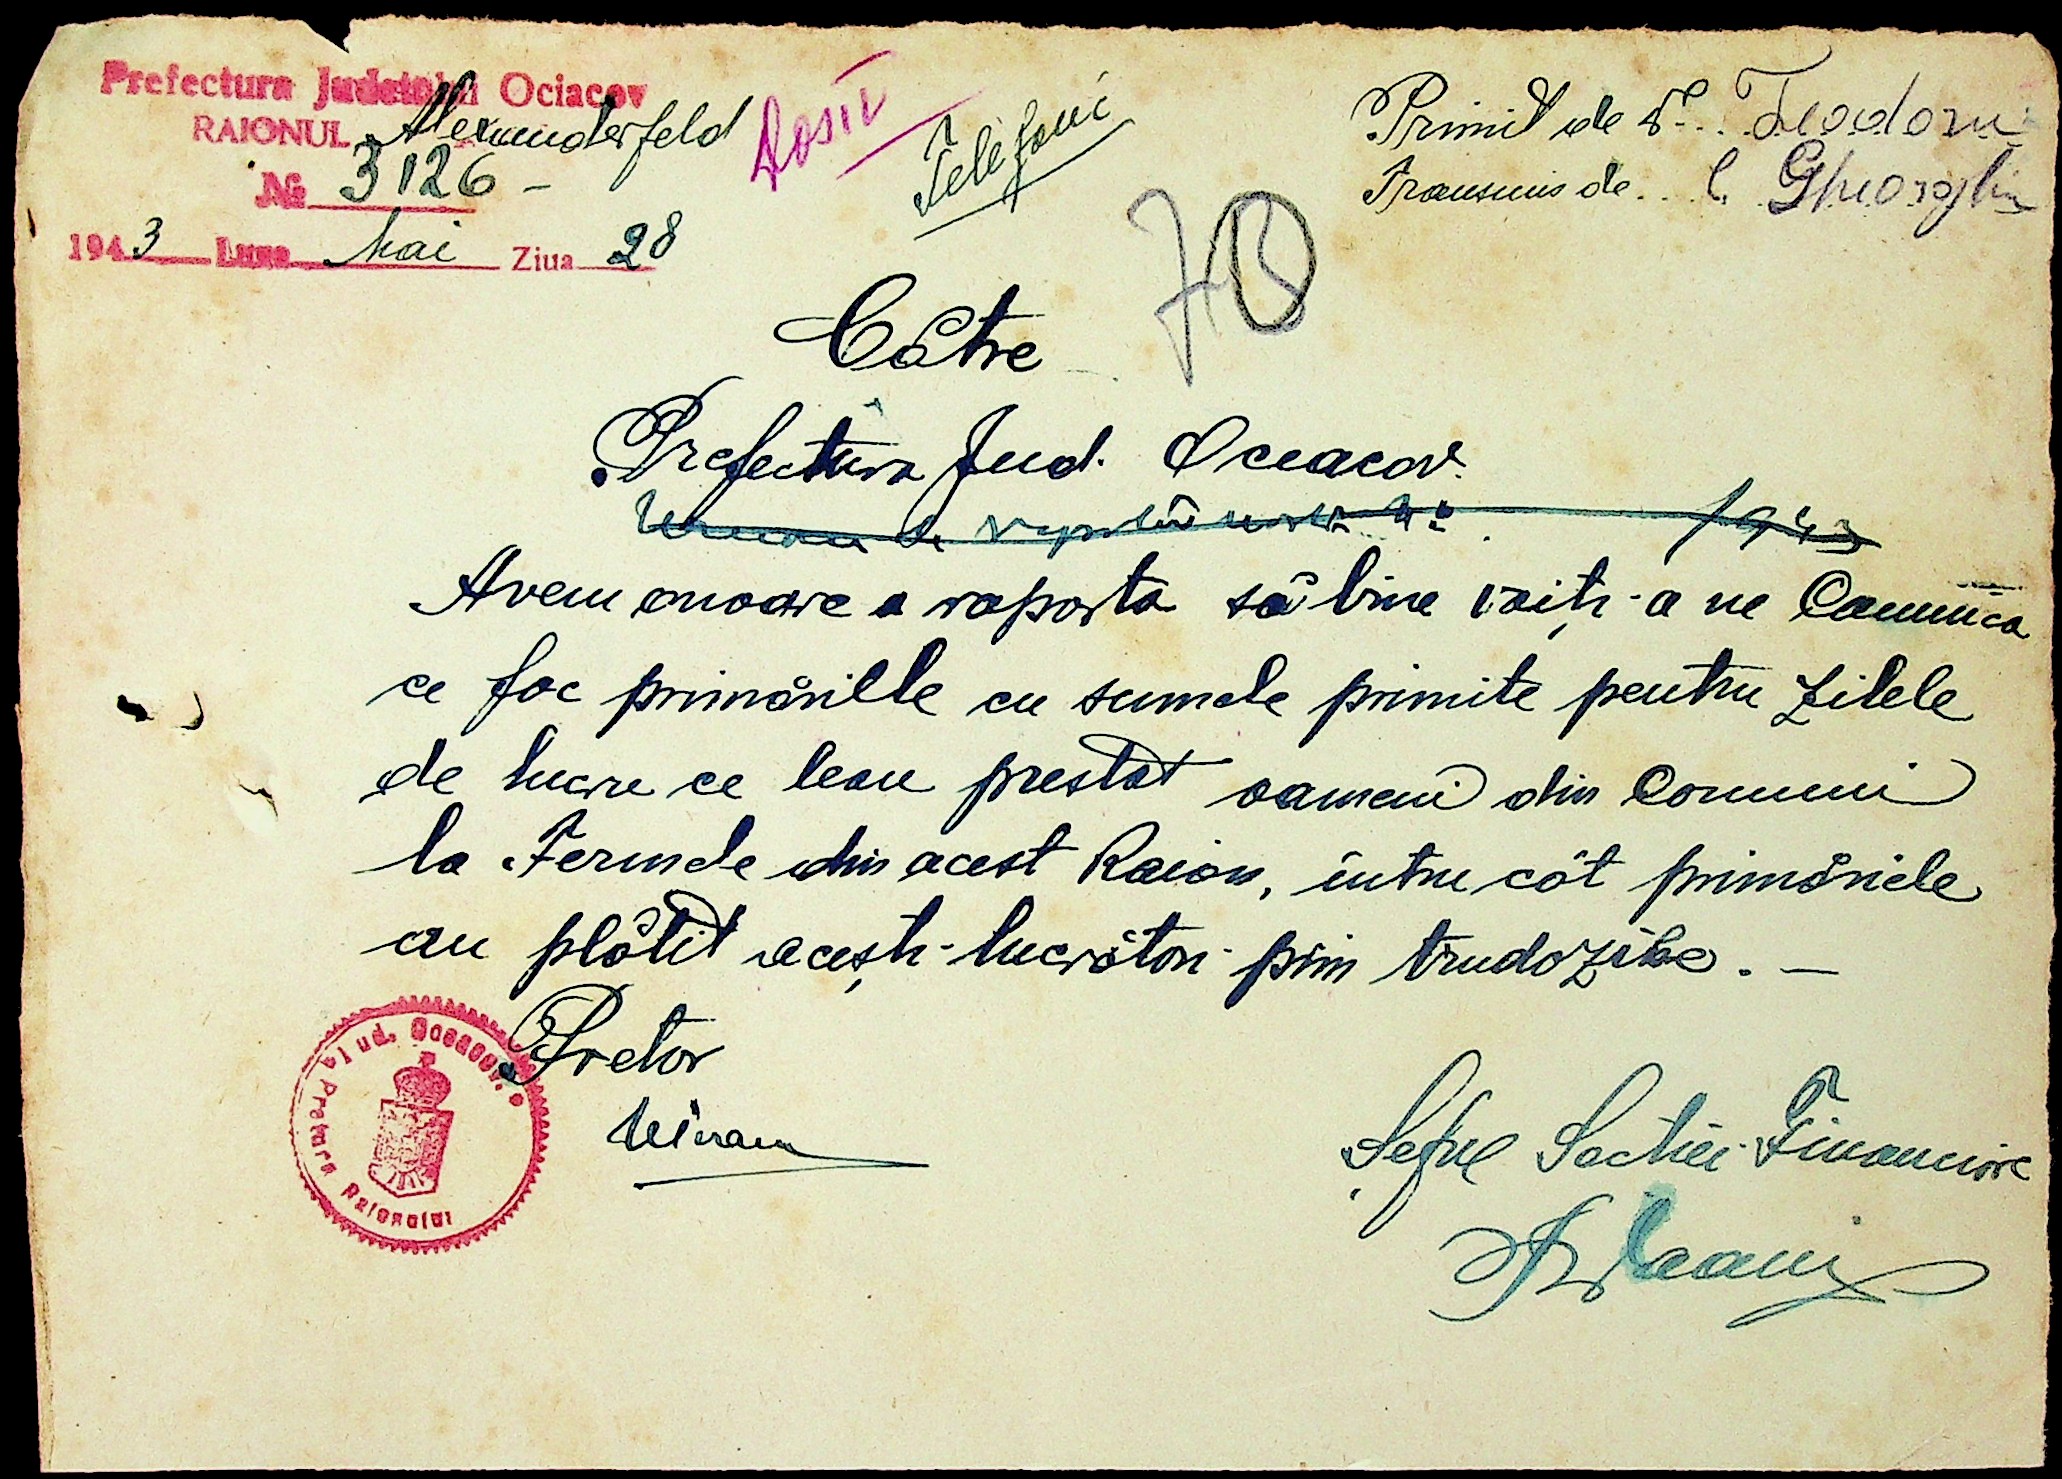 Prefectura Județului Ociacov
RAIONUL Alexanderfeld
№ 3126 -
1943 Luna Mai Ziua 28
Dosar
Telefonic
Primit de D. Teodoru
Transmis de C. Gheorghiu
Către
Prefectura Jud. Oceacov
1943
Avem onoare a raporta să bine voiți-a ne Comunica
ce fac primăriile cu sumele primite pentru zilele
de lucru ce leau prestat oameni din Comuni
la Fermele din acest Raion, intru cât primăriele
au plătit acești lucrători prin trudozile. —
Pretor
Șeful Secției Financiare
Jud. Oceacov
Pretura Raionului